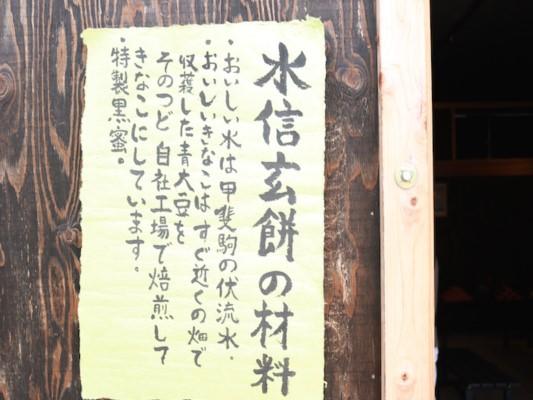 水信玄餅の材料
・おいしい水は甲斐駒の伏流水.
・おいしいきなこはすぐ近くの畑で
収穫した青大豆を
そのつど自社工場で焙煎して
きなこにしています。
・特製黒蜜。